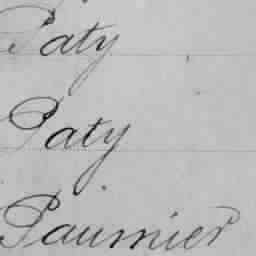 Paty
Paty
Paumier